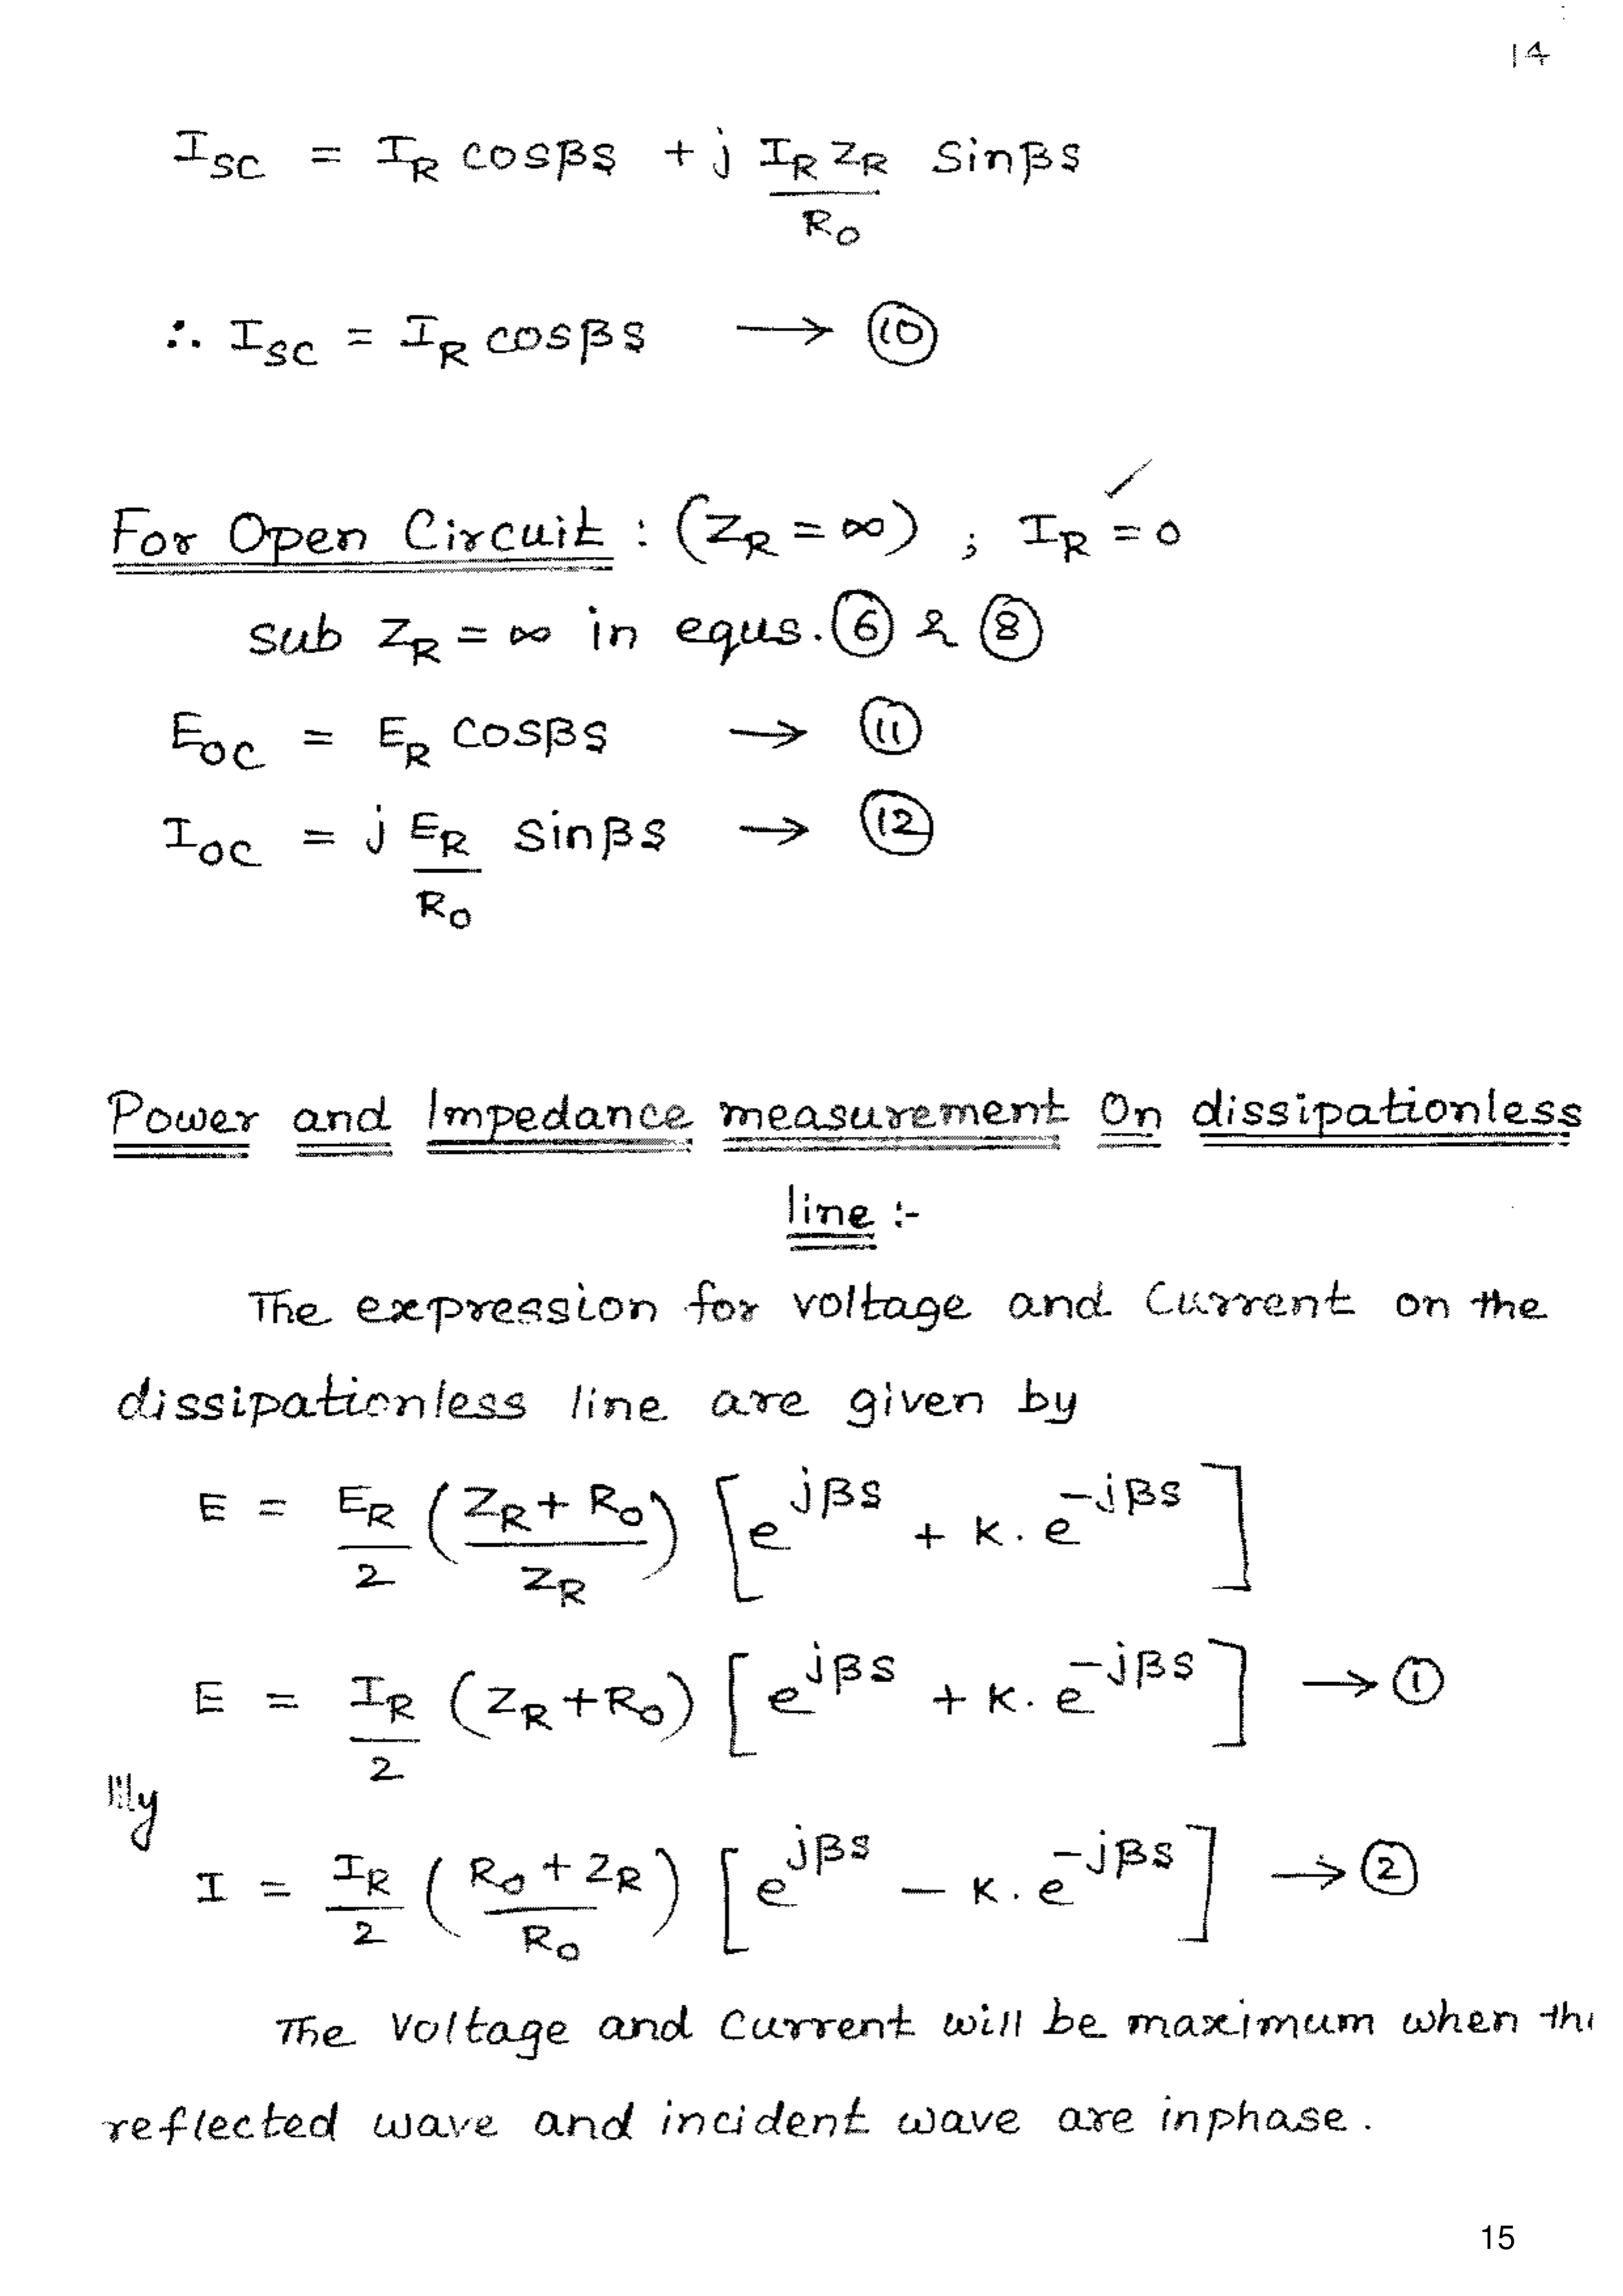 14
I_SC = I_R cosβs + j I_R Z_R / R_0 sinβs
∴ I_SC = I_R cosβs → (10)
For Open Circuit : (Z_R = ∞) ; I_R = 0
sub Z_R = ∞ in equs. (6) & (8)
E_OC = E_R cosβs → (11)
I_OC = j E_R / R_0 sinβs → (12)
Power and Impedance measurement On dissipationless
line :-
The expression for voltage and Current on the
dissipationless line are given by
E = E_R / 2 ( Z_R + R_0 / Z_R ) [ e^{jβs} + K . e^{-jβs} ]
E = I_R / 2 ( Z_R + R_0 ) [ e^{jβs} + K . e^{-jβs} ] → (1)
lllly
I = I_R / 2 ( R_0 + Z_R / R_0 ) [ e^{jβs} - K . e^{-jβs} ] → (2)
The Voltage and Current will be maximum when th
reflected wave and incident wave are inphase .
15